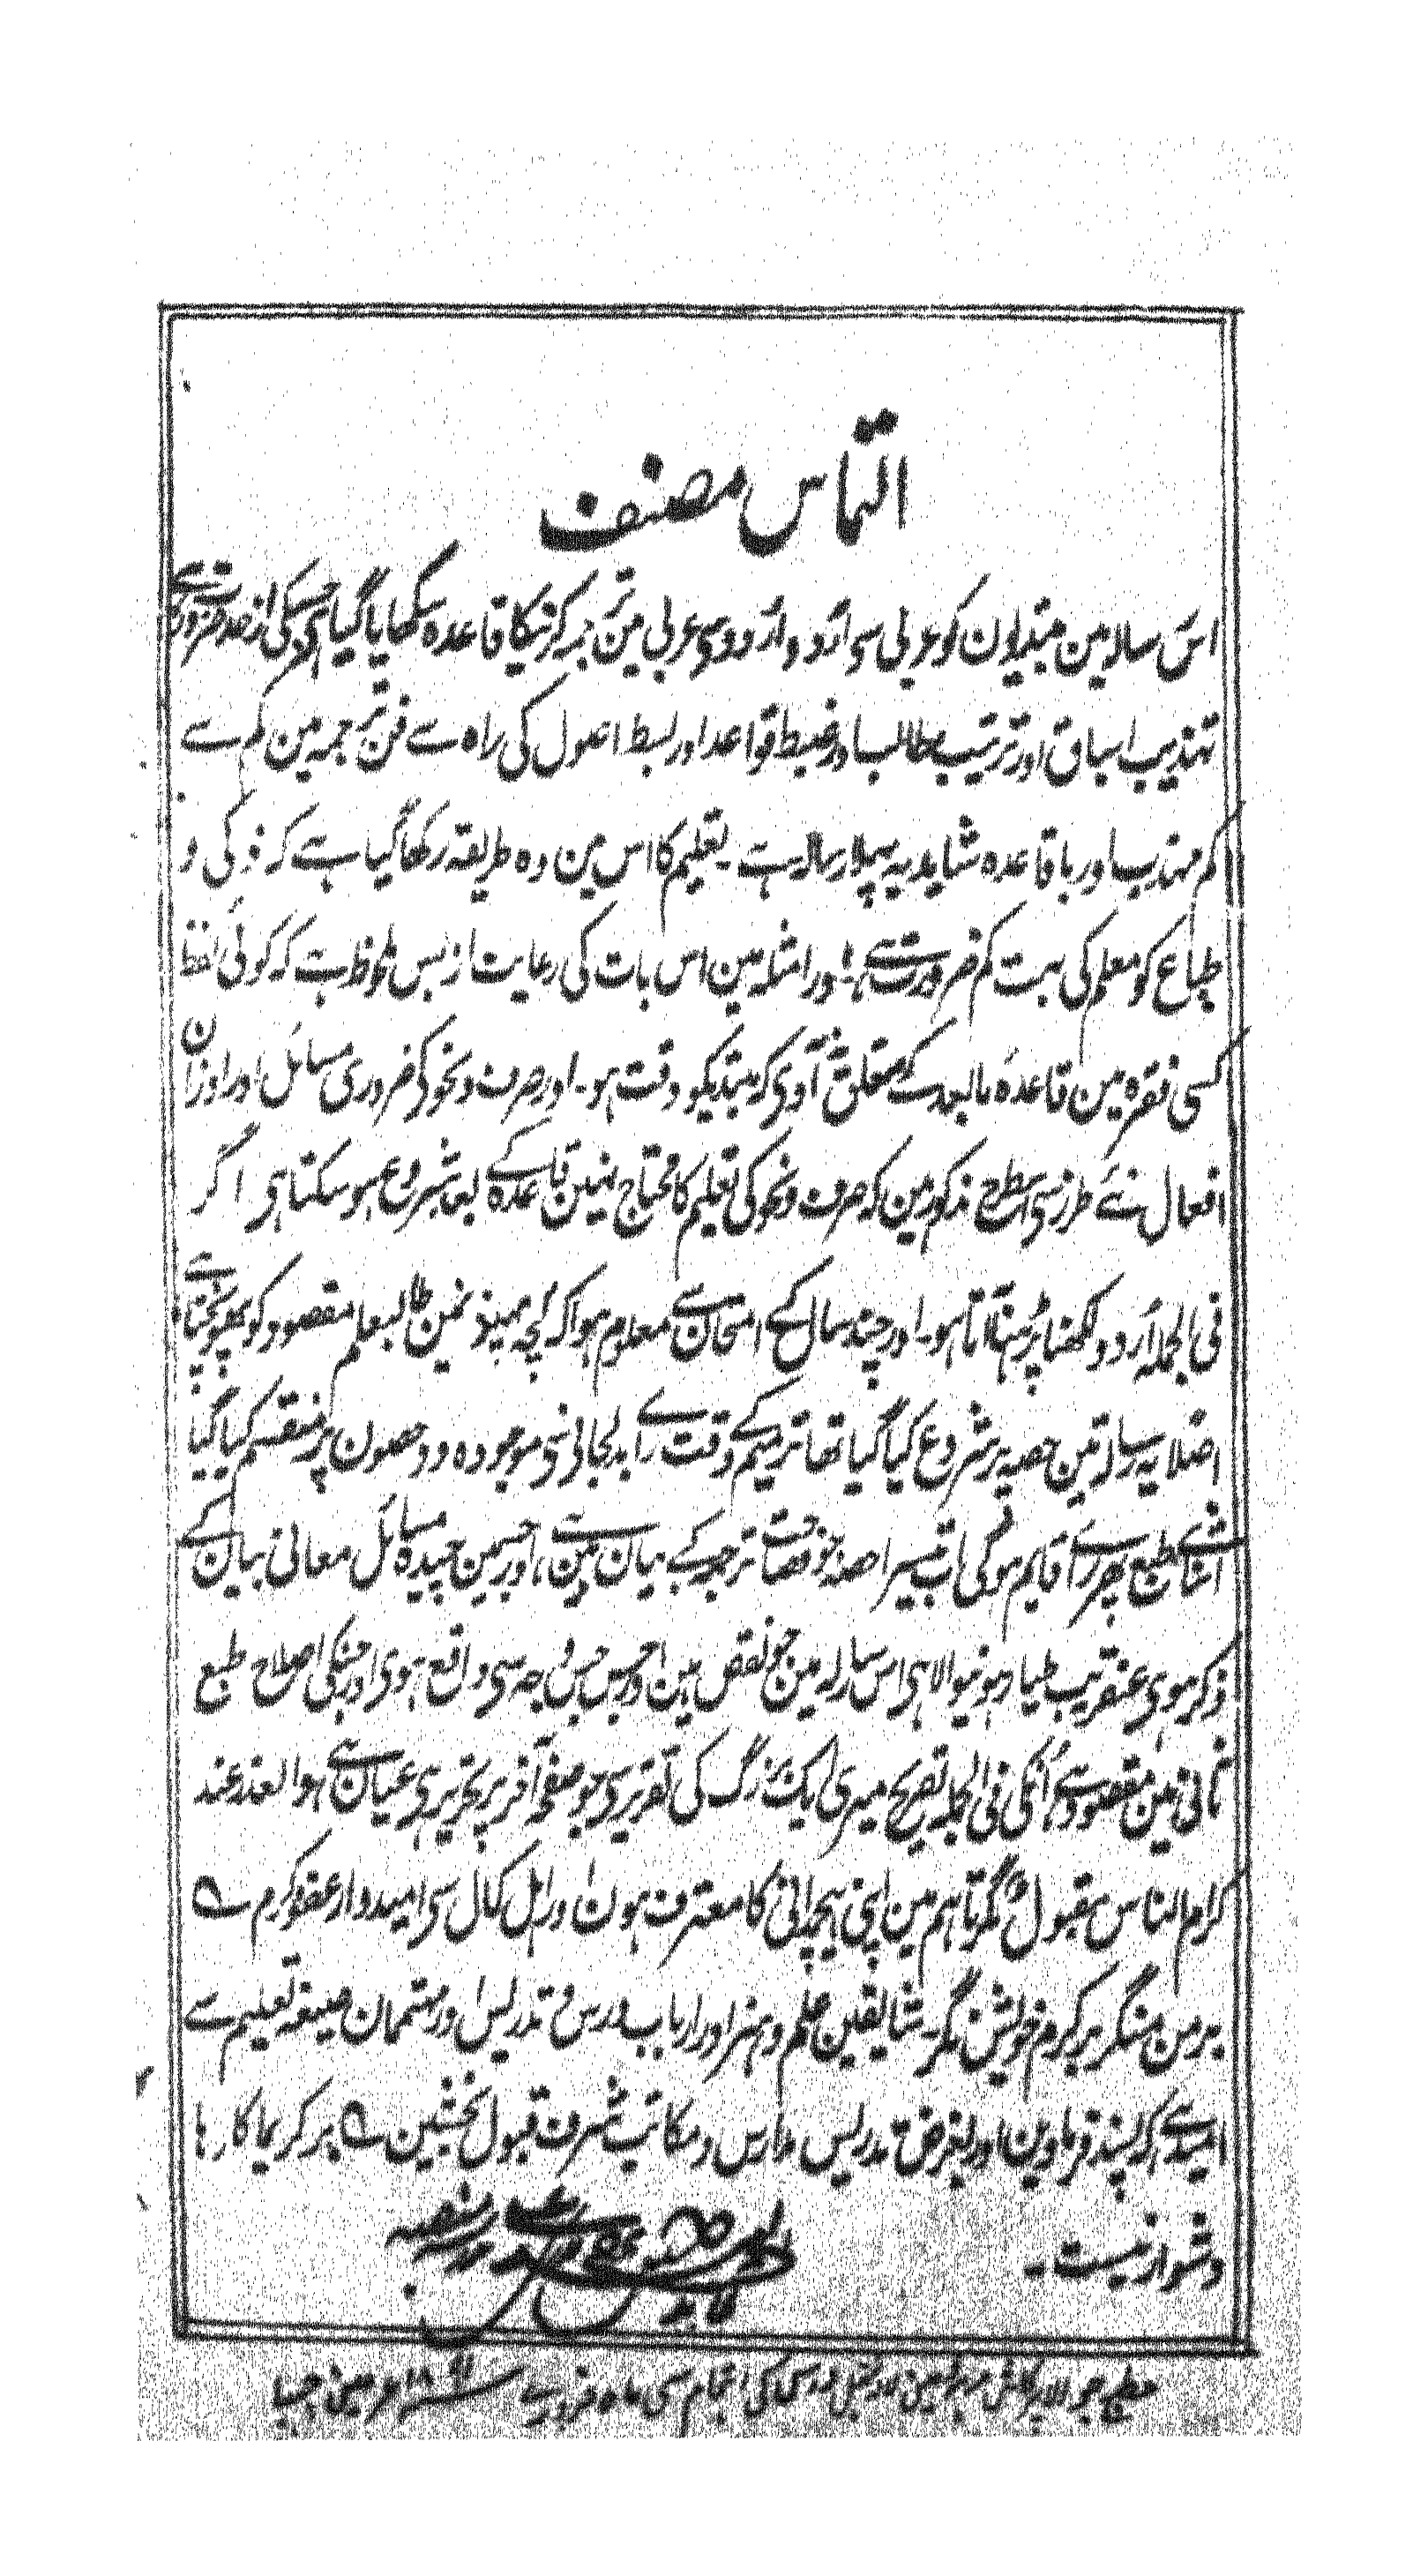 التماس مصنف
اس رسالا مین مبتدیون کو عربی سی اُردو و اُردو سی عربی مین ترجمہ کرنیکا قاعدہ سکھایا گیا ہی جسکی از حد ضرورت ہے
تہذیب اسباق اور ترتیب مطالب اور ضبط قواعد اور بسط اصول کی راہ سے فن ترجمہ مین کم سے
کم مہذب اور باقاعدہ شاید یہ پہلا رسالہ ہے ۔ تعلیم کا اس مین وہ طریقہ رکھا گیا ہے کہ ذکی و
طباع کو معلم کی بہت کم ضرورت ہے، اور امثلہ مین اس بات کی رعایت از بس ملحوظ ہے کہ کوئی لفظ
کسی فقرہ مین قاعدۂ مابعد کے متعلق نہ آوی کہ مبتدیکو دقت ہو ۔ اور صرف و نحو کی ضروری مسائل اور اوزان
افعال نئے طرز سی اسطرح مذکور مین کہ صرف و نحو کی تعلیم کا محتاج نہین قاعدہ کے بعد شروع ہو سکتا ہی اگر
فی الجملہ اُردو لکھنا پڑہنا آتا ہو ۔ اور چند سال کے امتحان سے معلوم ہوا کہ چھہ مہینہ مین طالبعلم مقصود کو پہونچتا ہے
اصلا یہ رسالہ تین حصہ پر شروع کیا گیا تھا ترمیم کے وقت رائے بدلجانی سی موجودہ دو حصون پر منقسم کیا گیا
اثنائے طبع پھر رائے قایم ہوگی اب تیسرا حصہ جو خصائص ترجمہ کے بیان مین ہے، اور جسمین چیدہ مسائل معانی بیان کے
ذکر ہوی عنقریب طیار ہونیوالا ہی اس رسالہ مین جو نقص ہین اور جس جس وجہ سی واقع ہوی اور جنکی اصلاح طبع
ثانی مین مقصود ہی اُنکی فی الجملہ تصریح میری ایک بزرگ کی تقریر سی جو صفحۂ آخر پر تحریر ہی عیان ہے ہوا لعذر عند
کرام الناس مقبول مگر تاہم مین اپنی ہیچمدانی کا معترف ہون اور اہل کمال سی امیدوار عفو و کرم ؎
بر من منگر بر کرم خویش نگر ۔ شایقین علم و ہنر اور ارباب درس و تدریس اور مہتممان صیغہ تعلیم سے
امید ہے کہ پسند فرماوین اور بغرض تدریس مدارس و مکاتب شرف قبول بخشین ؎ بر کریما کارہا
دشوار نیست ۔